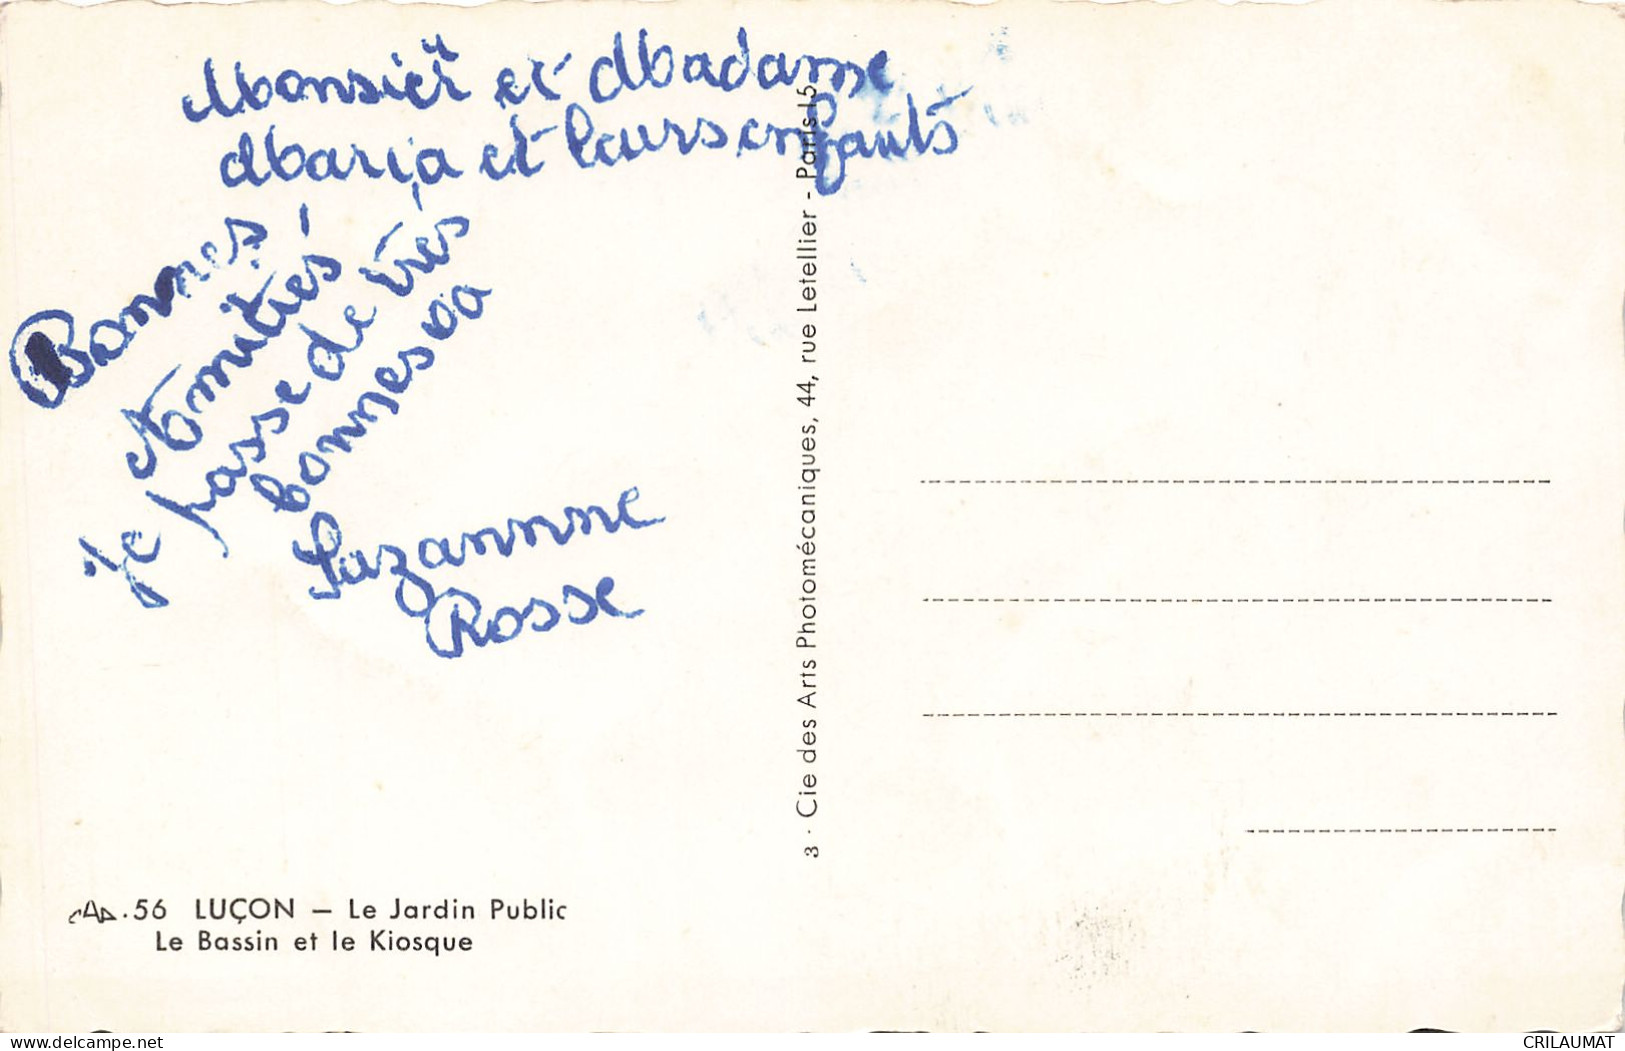 Monsieur et Madame
Maria et leurs enfants
Bonnes
Amitiés
Je passe de très
bonnes va
Suzannne
Rosse
3 · Cie des Arts Photomécaniques, 44, rue Letellier - Paris 15
CAP .56 LUÇON — Le Jardin Public
Le Bassin et le Kiosque
www.delcampe.net
CRILAUMAT